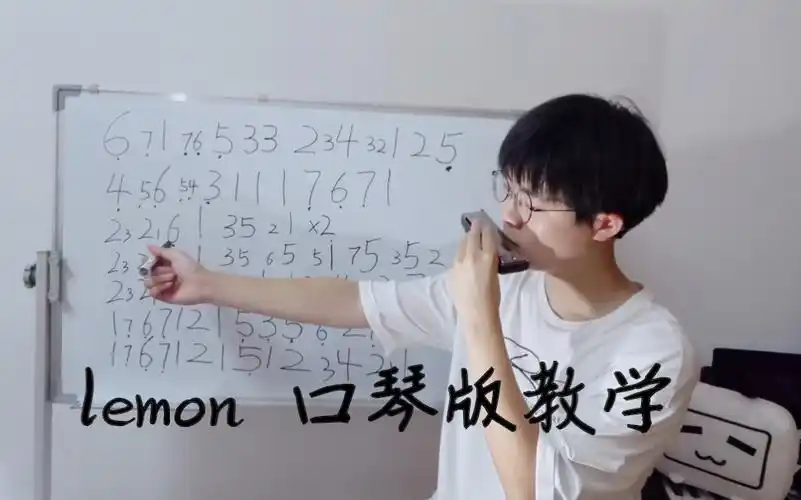 6 71 76 5 33 234 32 1 2 5
4 56 54 3 1 1 1 7 6 7 1
23 21 6 1 35 21 x2
23 1 35 65 51 75 35 2
23 2
1767121535 6 2
1767121512 34 2 1
lemon 口琴版教学